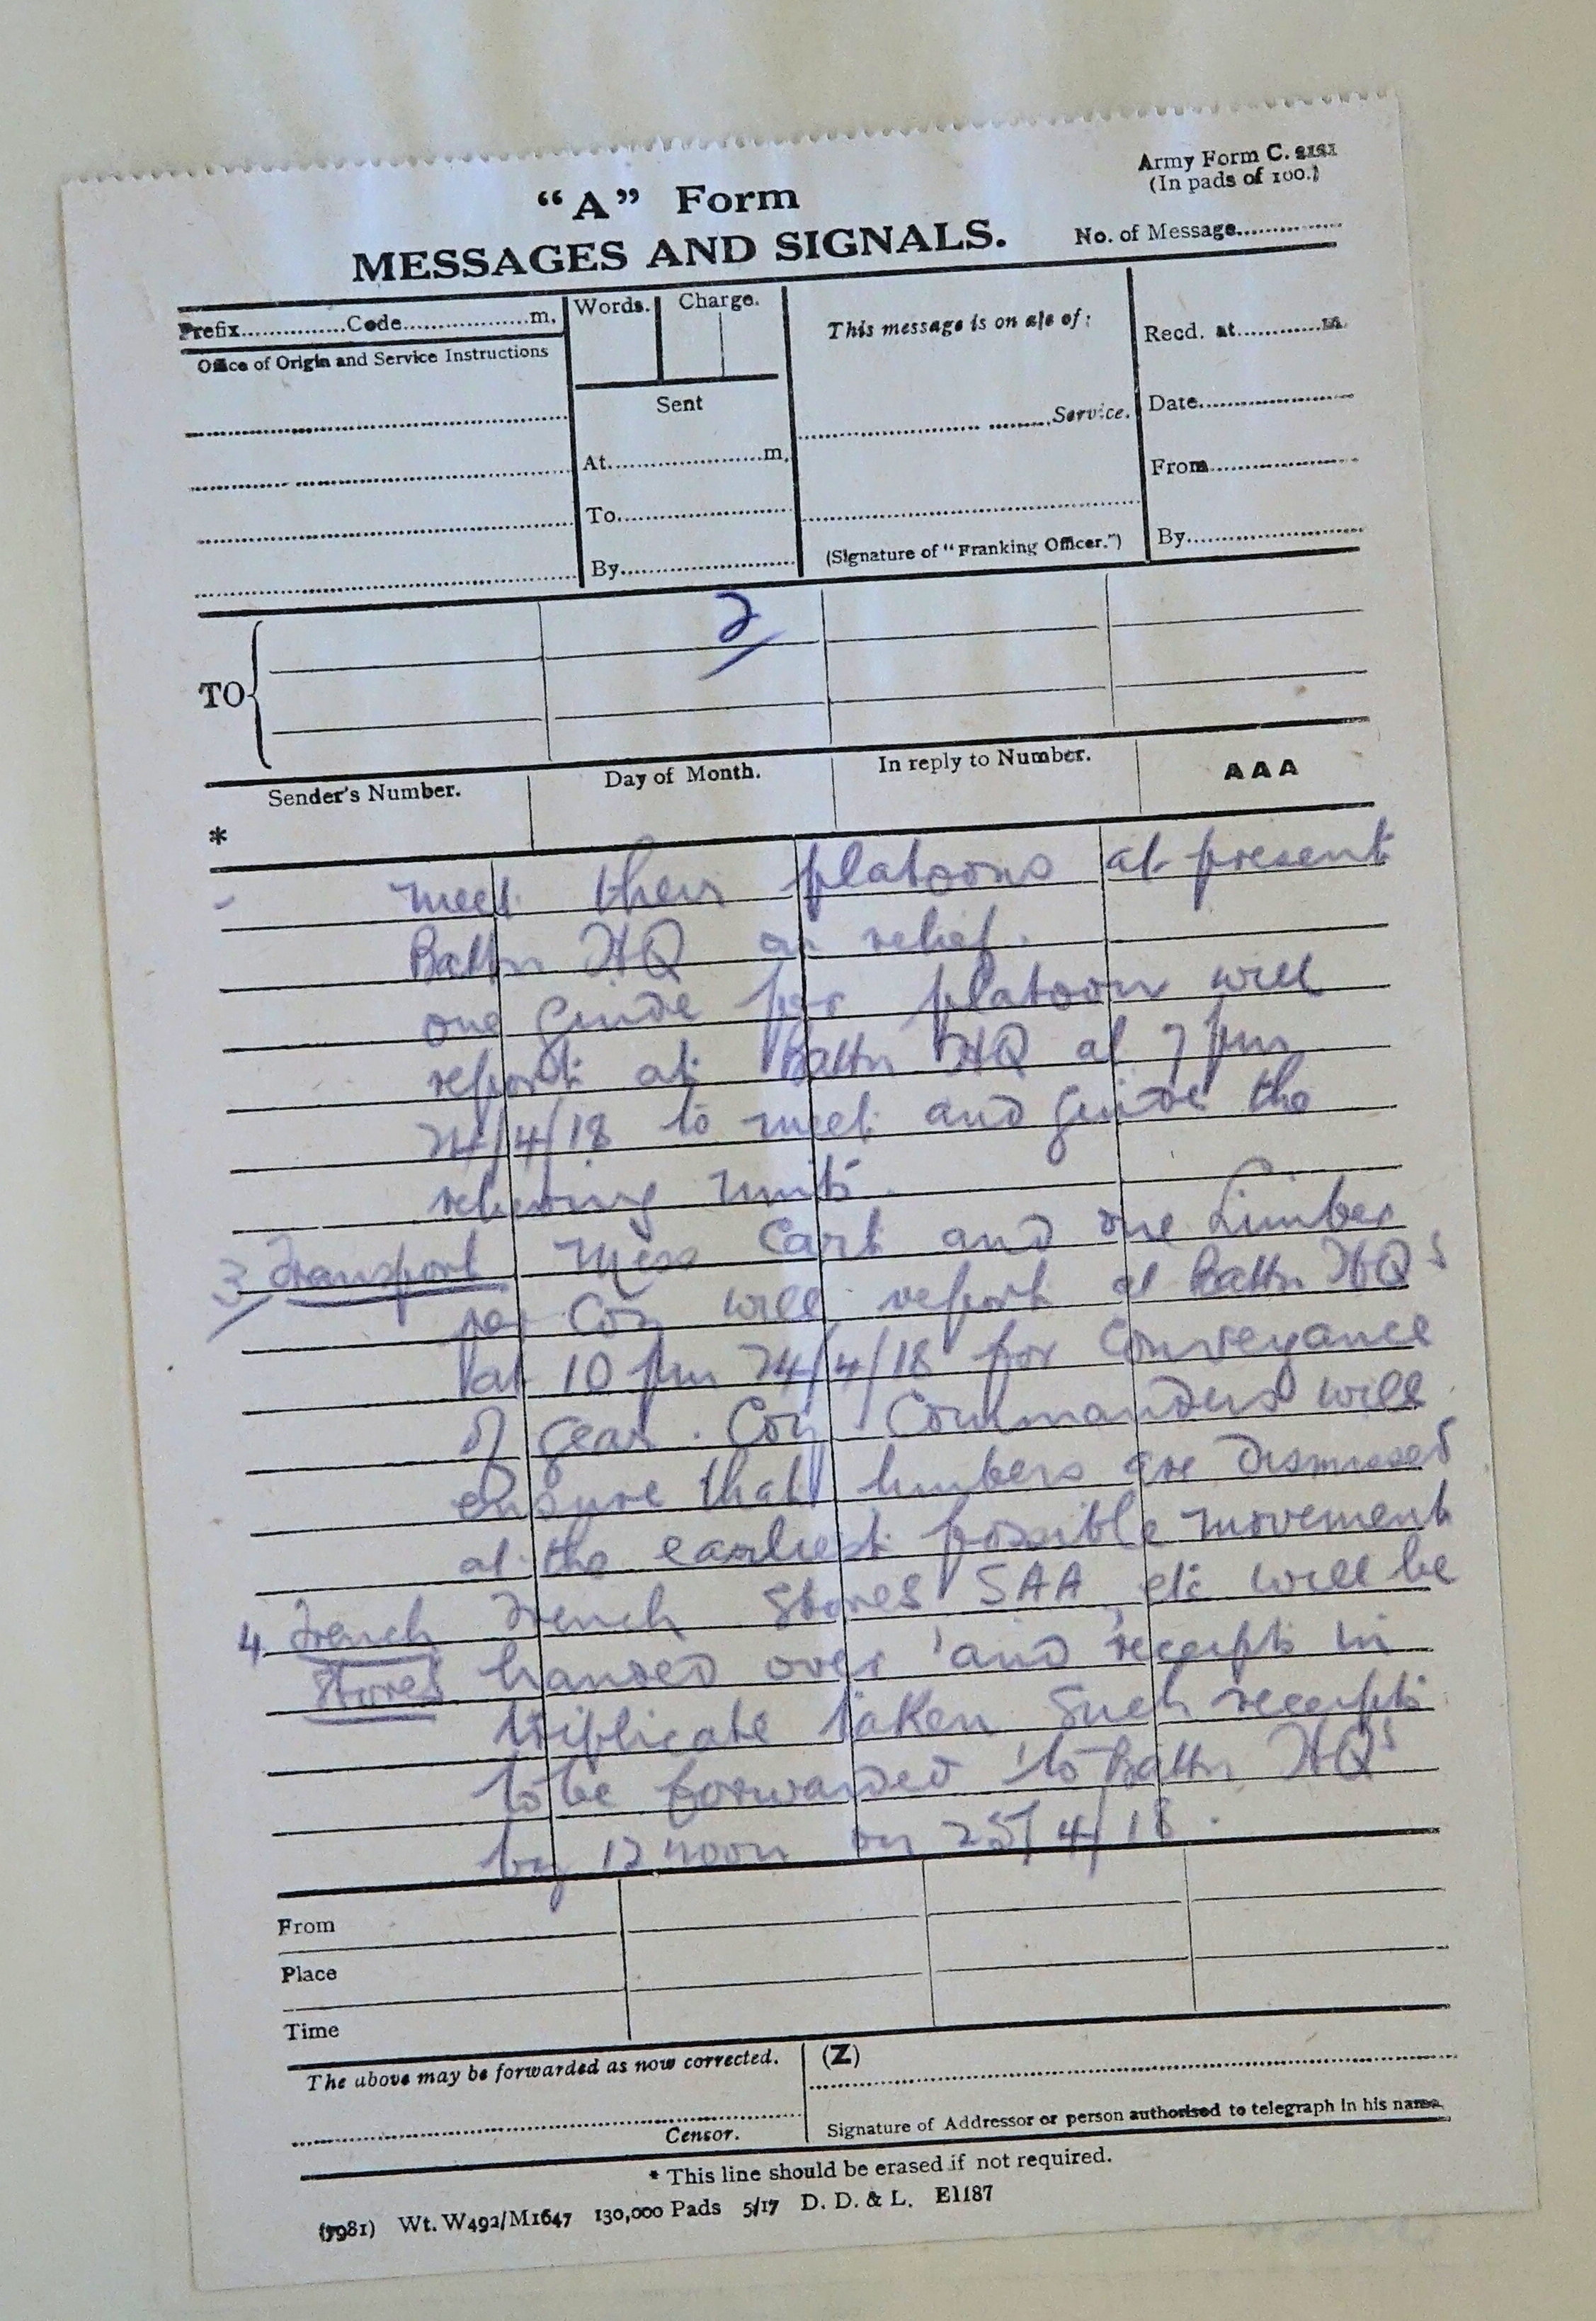 Army Form C. 2121
(In pads of 100.)
"A" Form
MESSAGES AND SIGNALS.
No. of Message..............
Prefix..............Code..................m.
Words.
Charge.
This message is on a/c of:
Recd. at............m.
Office of Origin and Service Instructions
Sent
Date......................
..........Service.
At......................m.
From......................
To......................
(Signature of "Franking Officer.")
By......................
By......................
2/
TO
Sender's Number.
Day of Month.
In reply to Number.
AAA
*
- meet their platoons at present
Battn HQ on relief.
one guide per platoon will
report at Battn HQ at 7 pm
24/4/18 to meet and guide the
relieving units.
3/ Transport Mess Cart and one Limber
per Coy will report at Battn HQs
at 10 pm 24/4/18 for Conveyance
of gear. Coy Commanders will
ensure that limbers are dismissed
at the earliest possible movement
4 Trench Trench Stores SAA, etc will be
Stores handed over and receipts in
triplicate taken such receipts
to be forwarded to Battn HQs
by 12 noon on 25/4/18.
From
Place
Time
The above may be forwarded as now corrected.
(Z)
Censor.
Signature of Addressor or person authorised to telegraph in his name.
* This line should be erased if not required.
(7981) Wt. W492/M1647 130,000 Pads 5/17 D. D. & L. E1187